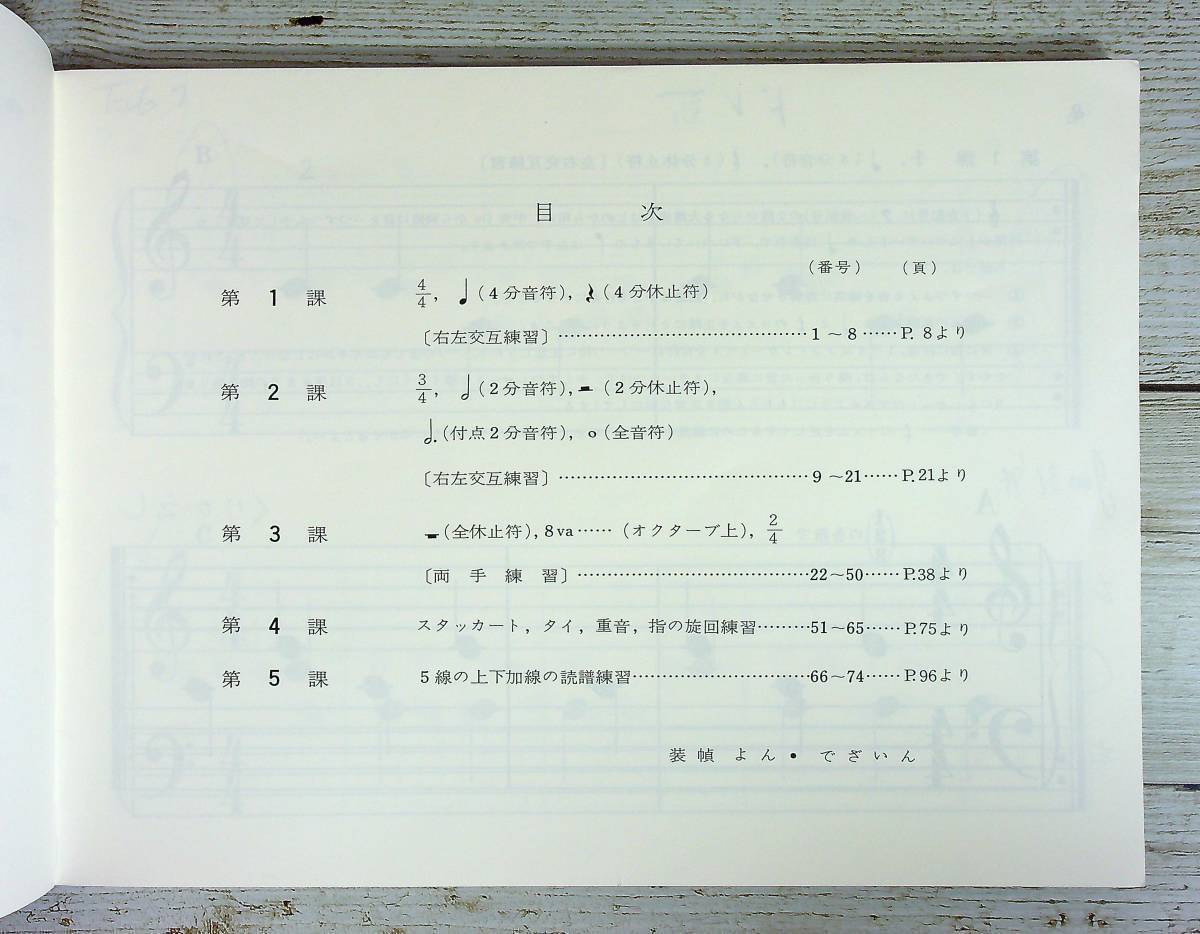 目 次
(番号) (頁)
第 1 課 4/4, ♩(4分音符), 𝄽(4分休止符)
〔右左交互練習〕……………………………………1～8……P. 8より
第 2 課 3/4, 𝅗𝅥(2分音符), 𝄼(2分休止符),
𝅗𝅥.(付点2分音符), 𝅝(全音符)
〔右左交互練習〕……………………………………9～21……P.21より
第 3 課 𝄻(全休止符), 8va……(オクターブ上), 2/4
〔両 手 練 習〕…………………………………22～50……P.38より
第 4 課 スタッカート, タイ, 重音, 指の旋回練習………51～65……P.75より
第 5 課 5線の上下加線の読譜練習…………………………66～74……P.96より
装 幀 よ ん ・ で ざ い ん